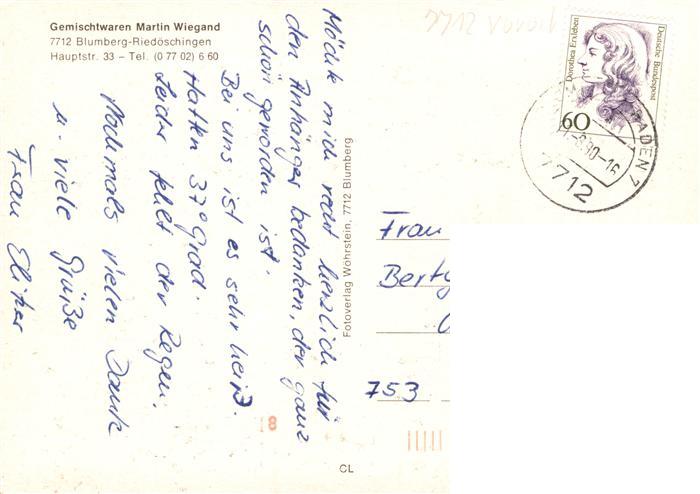 Gemischtwaren Martin Wiegand
7712 Blumberg-Riedöschingen
Hauptstr. 33 – Tel. (0 77 02) 6 60
Möchte mich recht herzlich für
den Anhänger bedanken, der ganz
schön geworden ist.
Bei uns ist es sehr heiß.
Hatten 37° Grad.
Leider fehlt der Regen.
Nochmals vielen Dank
u. viele Grüße
Frau
Fotoverlag Wöhrstein, 7712 Blumberg
Dorothea Erxleben
Deutsche Bundespost
60
BADEN 7
7712
Frau
753
CL